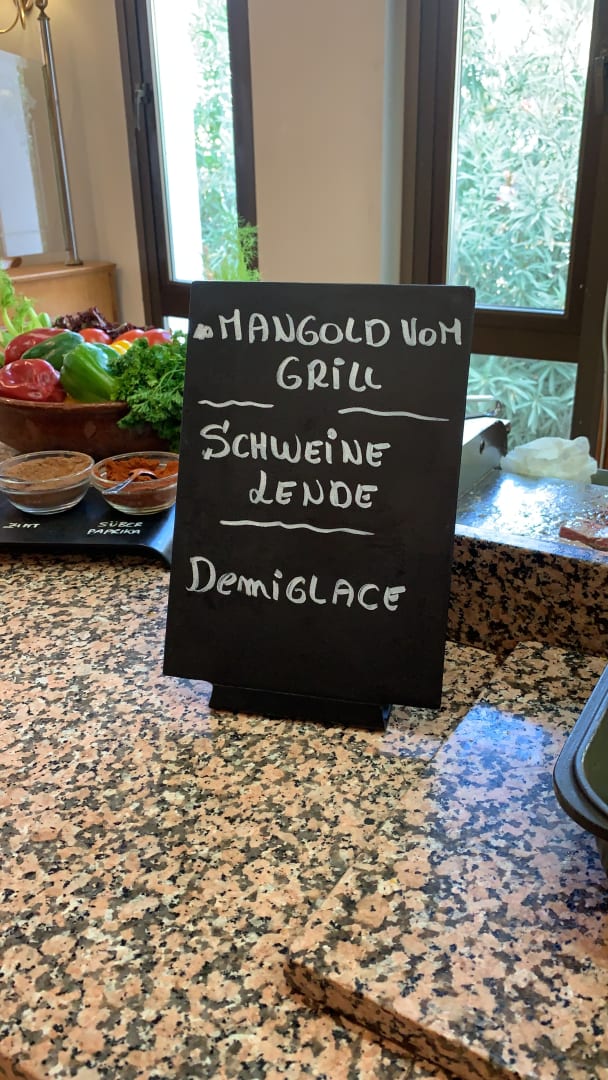 MANGOLD VOM
GRILL
SCHWEINE
LENDE
DemiGLACE
ZIMT
SÜßER
PAPRIKA